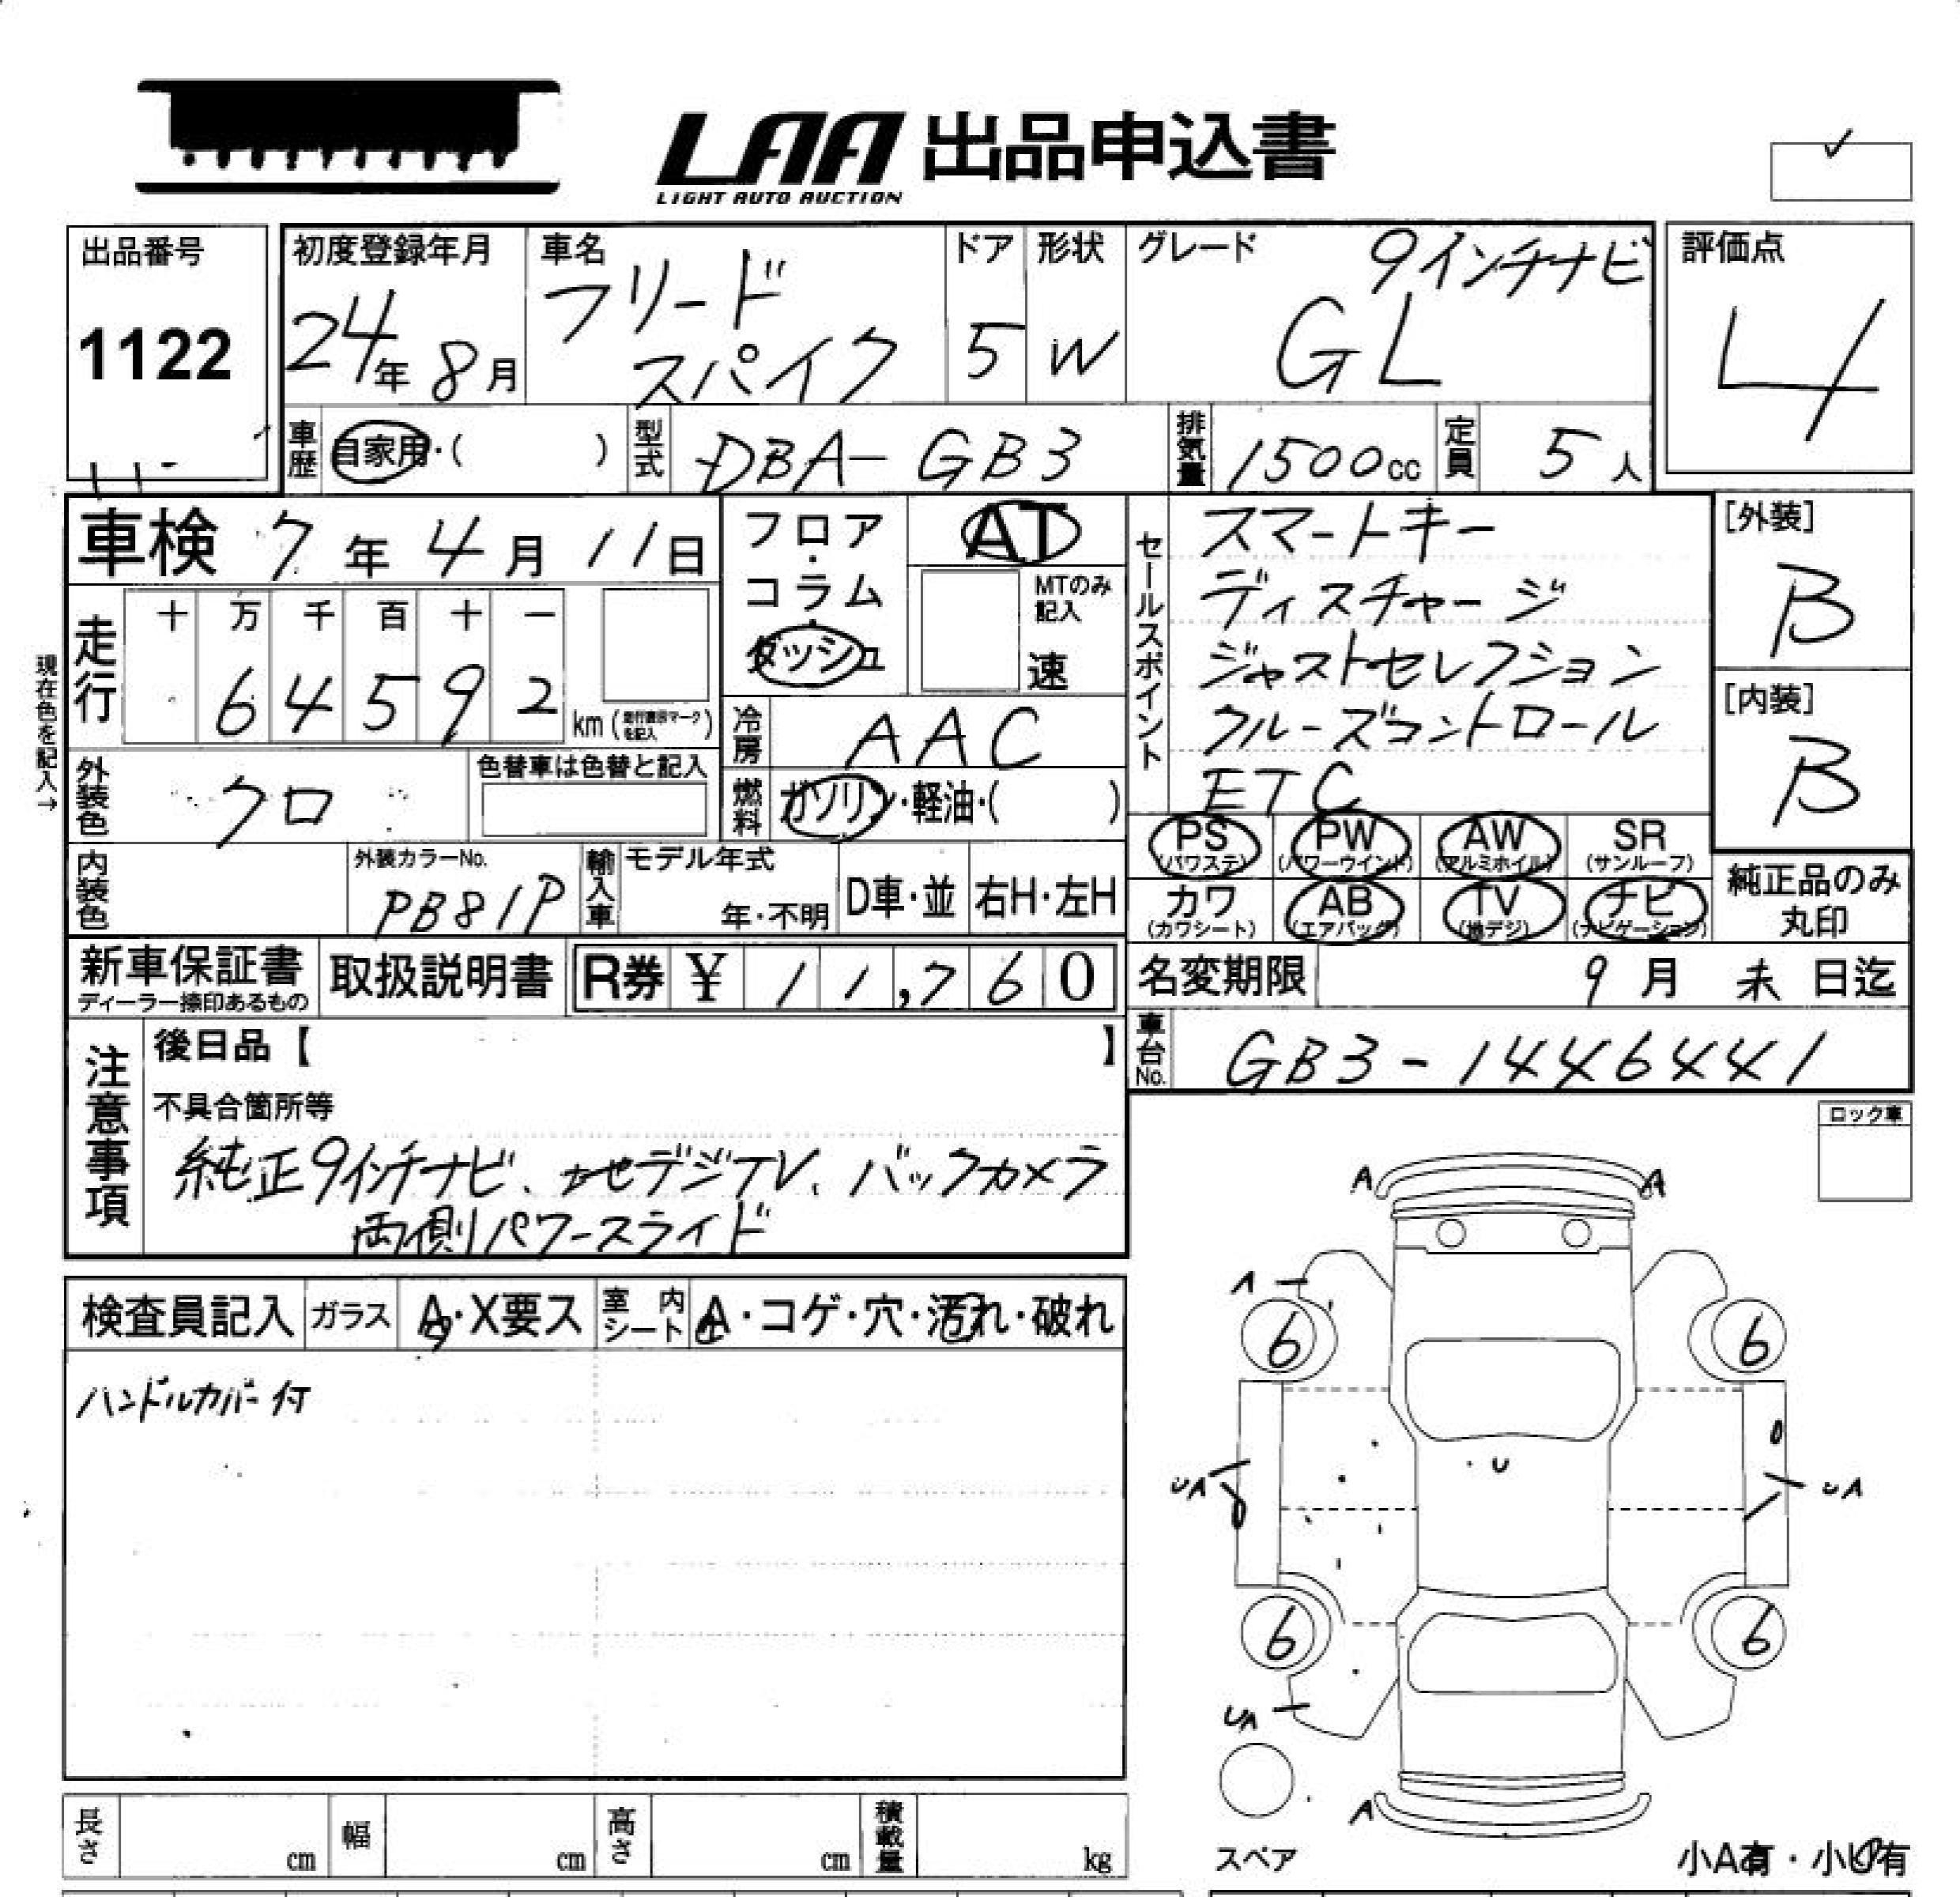 LAA 出品申込書
LIGHT AUTO AUCTION
出品番号
1122
初度登録年月
24年 8月
車名
フリード
スパイク
ドア
5
形状
W
グレード
9インチナビ
GL
評価点
4
車歴
自家用・( )
型式
DBA-GB3
排気量
1500cc
定員
5人
車検 7年 4月 11日
フロア・コラム・ダッシュ
AT
MTのみ記入
速
セールスポイント
スマートキー
ディスチャージ
ジャストセレクション
クルーズコントロール
ETC
[外装]
B
[内装]
B
現在色を記入→
走行
十 万 千 百 十 一
6 4 5 9 2
km(走行表示マークを記入)
冷房
AAC
外装色
クロ
色替車は色替と記入
燃料
ガソリン・軽油・( )
PS (パワステ)
PW (パワーウインド)
AW (アルミホイル)
SR (サンルーフ)
カワ (カワシート)
AB (エアバッグ)
TV (地デジ)
ナビ (ナビゲーション)
純正品のみ
丸印
内装色
外装カラーNo.
PB81P
輸入車
モデル年式
年・不明
D車・並
右H・左H
新車保証書
ディーラー捺印あるもの
取扱説明書
R券 ¥ 11,760
名変期限 9月 末 日迄
車台No.
GB3-1446441
注意事項
後日品【 】
不具合箇所等
純正9インチナビ、地デジTV、バックカメラ
両側パワースライド
ロック車
検査員記入
ガラス
A・X要ス
室内シート
A・コゲ・穴・汚れ・破れ
ハンドルカバー付
A A
A
6 6
U
UA UA
6 6
UA
A
スペア
小A有・小U有
長さ cm
幅 cm
高さ cm
積載量 kg